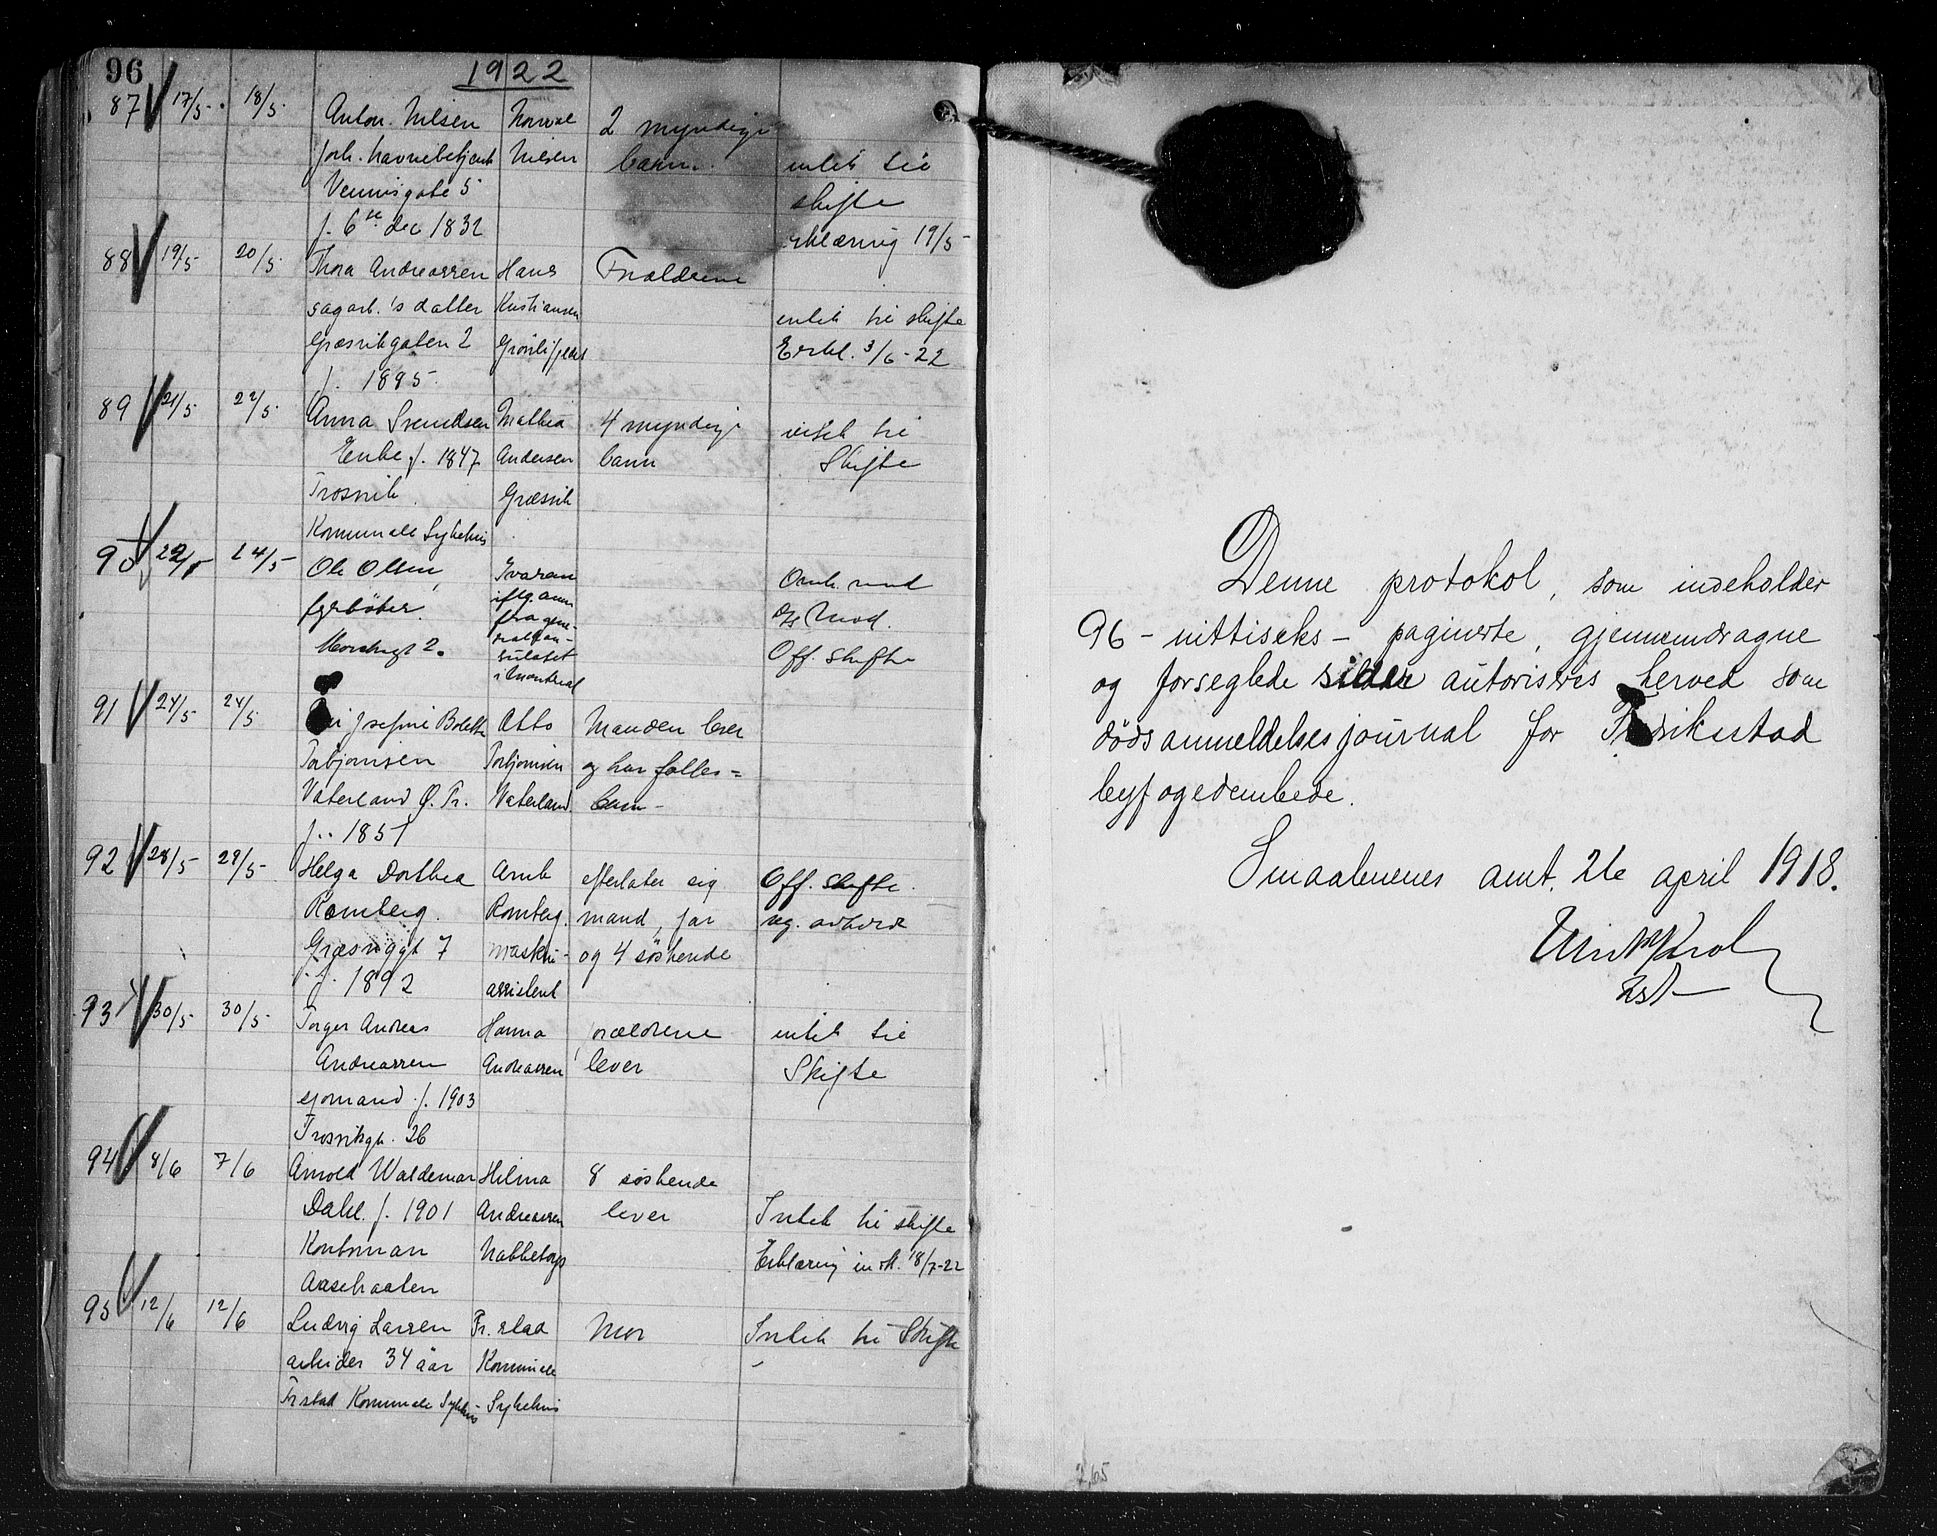 96
1922
87 17/5 18/5 Anton Nilsen
forh. havnebetjent Nilsen
5
f. 6te dec 1832
2 myndige
barn
intet til
skifte
erklæring 19/5
88 19/5 20/5 Thora Andreassen Hans
sagarb.'s datter Kristiansen
Græsvikgaten 2
f. 1895
Forældrene
intet til skifte
Erkl. 3/6-22
89 21/5 22/5 Anna Svendsen Mathea
Enke f. 1847 Andersen
Trosvik Græsvik
Kommunale Sykehus
4 myndige
barn
intet til
Skifte
90 22/5 24/5 Ole Olsen
fyrbøter
2.
iflg. anm
fra gene-
ralkon-
sulatet
i Montreal
Off. skifte
91 24/5 24/5 Josefine Bolette Otto
Torbjørnsen Torbjørnsen
Vaterland Ø. Fr. Vaterland
f. 1851
Manden lever
og har fælles-
barn
92 28/5 29/5 Helga Dorthea Arnt
Romberg. Romberg.
7 maskin-
f. 1892 assistent
efterlater sig
mand, far
og 4 søskende
Off. skifte
93 30/5 30/5 Torger Andreas Hanna
Andreassen Andreassen
sjømand f. 1903
Trosvikgt. 26
forældrene
lever
intet til
Skifte
94 8/6 7/6 Arnold Waldemar Hilma
Dahl. f. 1901 Andreassen
Kontorman Nabbetorp
8 søskende
lever
Intet til skifte
Erklæring 18/7-22
95 12/6 12/6 Ludvig Larsen Fr.stad
arbeider 34 aar Kommunale
Frstad Kommunale Sykehus Sykehus
Mor
Intet til Skifte
Denne protokol, som indeholder
96 - nittiseks - paginerte, gjennemdragne
og forseglede sider autoriseres herved som
dødsanmeldelsesjournal for Fredrikstad
byfogedembede.
Smaalenenes amt, 26 april 1918.
265